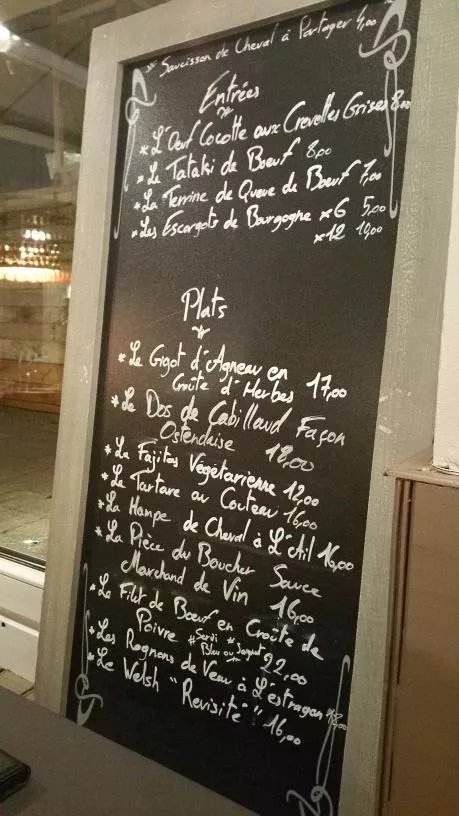 * Saucisson de Cheval à Partager 4,00
Entrées
* L'Oeuf Cocotte aux Crevettes Grises 8,00
* Le Tataki de Boeuf 8,00
* La Terrine de Queue de Boeuf 7,00
* Les Escargots de Bourgogne x6 5,00
x12 10,00
Plats
* Le Gigot d'Agneau en
Croûte d'Herbes 17,00
* Le Dos de Cabillaud Façon
Ostendaise 18,00
* La Fajitas Végétarienne 12,00
* Le Tartare au Couteau 16,00
* La Hampe de Cheval à L'Ail 16,00
* La Pièce du Boucher Sauce
Marchand de Vin 16,00
* Le Filet de Boeuf en Croûte de
Poivre * Servi * 22,00
Bleu ou Saignant
* Les Rognons de Veau à L'estragon 18,00
* Le Welsh "Revisité" 16,00